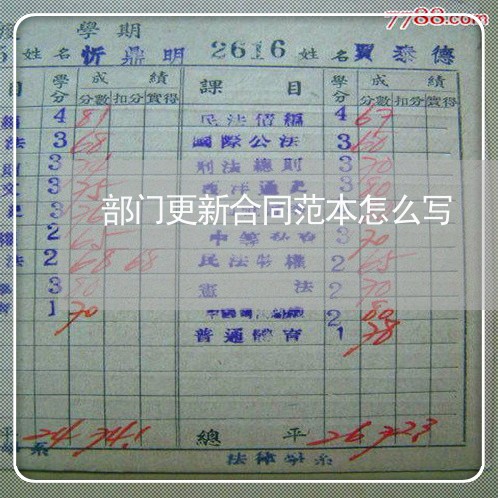 7788.com
學期
姓名 忻鼎明 2616 姓名 賈泰德
目 學分 成績 課目 學分 成績
分數 扣分 實得 分數 扣分 實得
4 81 民法債編 4 67
法 3 68 國際公法 3 60
3 刑法總則 3 70
3 75 西洋通史 3 80
部门更新合同范本怎么写
2 65 3 70
法 2 68 68 民法物權 2 65
3 80 憲法 2 70
1 70 2 80
普通體育 1 78
平 24 74.1 總平 26 72.3
系 法律學系